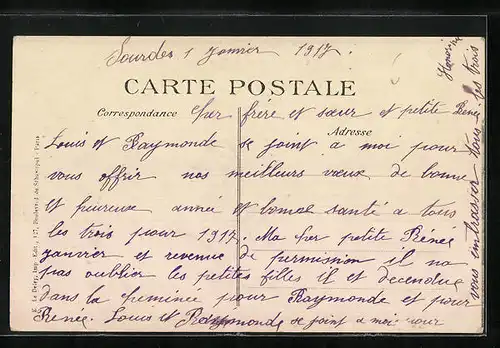 Sourdes 1 Janvier 1917.
CARTE POSTALE
Correspondance
Adresse
Cher frère et sœur et petite Renée
Louis et Raymonde se joint a moi pour
vous offrir nos meilleurs vœux de bonne
et heureuse année et bonne santé a tous
les trois pour 1917. Ma cher petite Renée
janvier et revenue de permission il na
pas oublier les petites filles il et decendue
dans la cheminée pour Raymonde et pour
Renée. Louis et Raymonde se joint a moi pour
vous embrasser tous les trois
Le Deley, Imp.-Edit., 127, Boulevard de Sébastopol, Paris